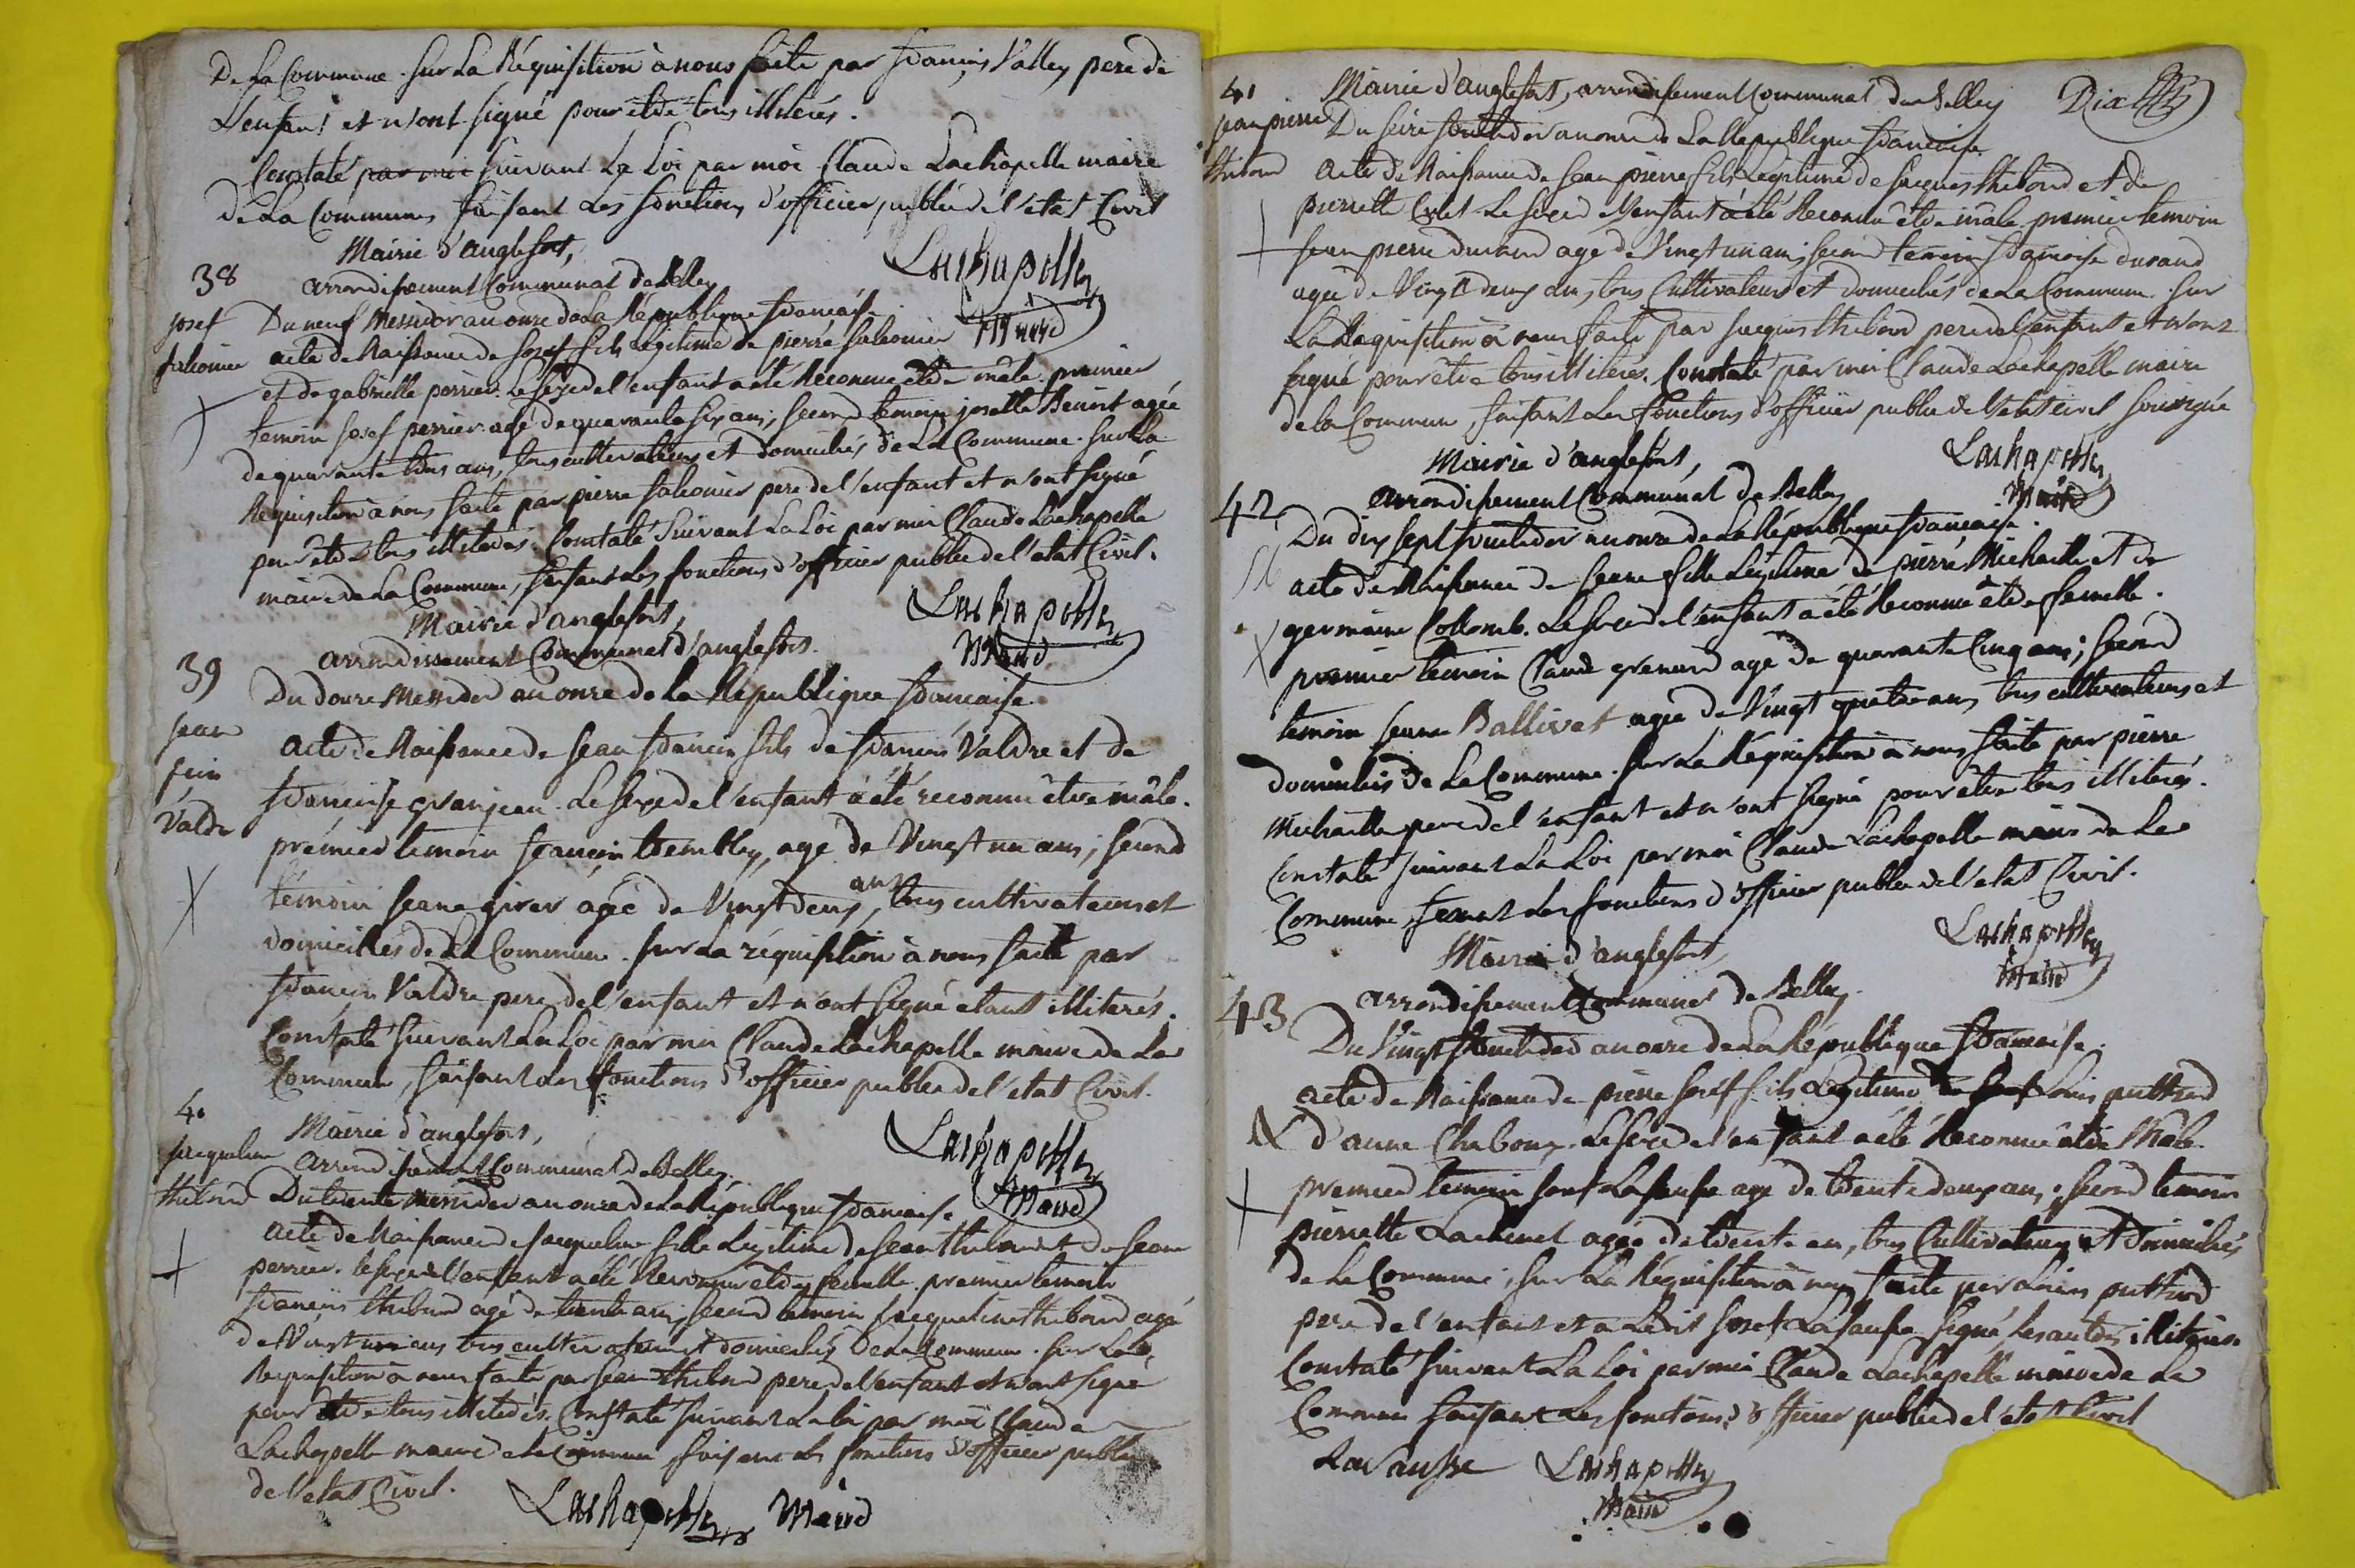 De la Commune. sur la Réquisition à nous faite par françois Valley pere de
L'enfant et n'ont signé pour etre tous illiterés.
Constaté par moi suivant La Loi par moi Claude Lachapelle maire
de La Commune, faisant Les fonctions d'officier public de l'etat Civil
Lachapelle
Maire
Mairie d'anglefort,
arrondissement Communal de Belley
38
Josef
falconier
Du neuf Messidor an onze de La République française
acte de Naissance de Josef fils Légitime de pierre falconier
et de gabrielle perrier. Le sexe de l'enfant a été Reconnu être mâle. premier
temoin Josef perrier agé de quarante six ans; second temoin josette Benoit agée
de quarante trois ans, tous cultivateurs et domiciliés de La Commune. sur La
Requisition à nous faite par pierre falconier pere de l'enfant et n'ont signé
pour être tous illiterés. Constaté suivant La Loi par moi Claude Lachapelle
maire de La Commune, faisant Les fonctions d'officier public de l'etat Civil.
Lachapelle
Maire
Mairie d'anglefort,
arrondissement Communal d'anglefort.
39
Jean
Valdre
Du douze Messidor an onze de la République française
Acte de Naissance de Jean françois fils de françois Valdre et de
françoise granjean. Le sexe de l'enfant a été reconnu être mâle.
prémier temoin françois trembley, agé de Vingt un ans; second
témoin Jeane girer agée de Vingt deux ans, tous cultivateurs et
domiciliés de La Commune. sur La réquisition à nous faite par
françois Valdre pere de l'enfant et n'ont signé etant illiterés.
Constaté suivant La Loi par moi Claude Lachapelle maire de La
Commune, faisant Les fonctions d'officier public de l'etat Civil.
Lachapelle
Maire
40
Jacqueline
thibond
Mairie d'anglefort,
arrondissement Communal de Belley.
Du trente Messidor an onze de La République française
acte de Naissance de Jacqueline fille Légitime de Jean thibond et de Jeane
perrier. le sexe de l'enfant a été Reconnu etre femelle. premier temoin
françois thibond agé de trente ans; second temoin Jacqueline thibond agé
de Vingt un ans tous cultivateurs et domiciliés de La Commune. sur La
Requisition à nous faite par Jean thibond pere de l'enfant et n'ont signé
pour etre tous illiterés. Constaté suivant La loi par moi Claude
Lachapelle maire de la Commune, faisant Les fonctions d'officier public
de l'etat Civil.
Lachapelle Maire
Dix
41
Jean pierre
thibond
Mairie d'anglefort, arrondissement Communal de Belley
Du seize fructidor an onze de La République française
acte de Naissance de Jean pierre fils Légitime de Jacques thibond et de
pierrette Le sexe de l'enfant a été Reconnu être mâle premier temoin
Jean pierre durand agé de Vingt un ans, second temoin françoise durand
agée de Vingt deux ans, tous Cultivateurs et domiciliés de La Commune. Sur
La Requisition à nous faite par Jacques thibond pere de l'enfant et n'ont
signé pour être tous illiterés. Constaté par moi Claude Lachapelle maire
de la Commune, faisant Les fonctions d'officier public de l'etat civil soussigné
Lachapelle
Maire
Mairie d'anglefort,
arrondissement Communal de Belley
42
Du dix sept fructidor an onze de La République française.
acte de Naissance de Jeane fille Légitime de pierre Michaille et de
germaine Collomb. Le sexe de l'enfant a été Reconnu être femelle.
premier temoin Claude grenard agé de quarante Cinq ans; second
temoin Jeanne Ballivet agée de Vingt quatre ans tous cultivateurs et
domiciliés de La Commune. sur La Réquisition à nous faite par pierre
Michaille pere de l'enfant et n'ont signé pour être tous illiterés.
Constaté suivant La Loi par moi Claude Lachapelle maire de La
Commune, faisant Les fonctions d'officier public de l'etat Civil.
Lachapelle
Maire
Mairie d'anglefort,
arrondissement Communal de Belley.
43
Du Vingt fructidor an onze de La République française.
acte de Naissance de pierre Josef fils Légitime de Louis puttod
& d'anne Chaboux. Le sexe de l'enfant a été Reconnu être Mâle.
premier temoin Josef Lasausse agé de trente deux ans, second temoin
pierrette agée de trente un, tous Cultivateurs et domiciliés
de La Commune, sur La Réquisition à nous faite par Louis puttod
pere de l'enfant et a Ledit Josef Lasausse signé, les autres illiterés.
Constaté suivant La Loi par moi Claude Lachapelle maire de La
Commune faisant Les fonctions d'officier public de l'etat Civil
Lasausse Lachapelle
Maire